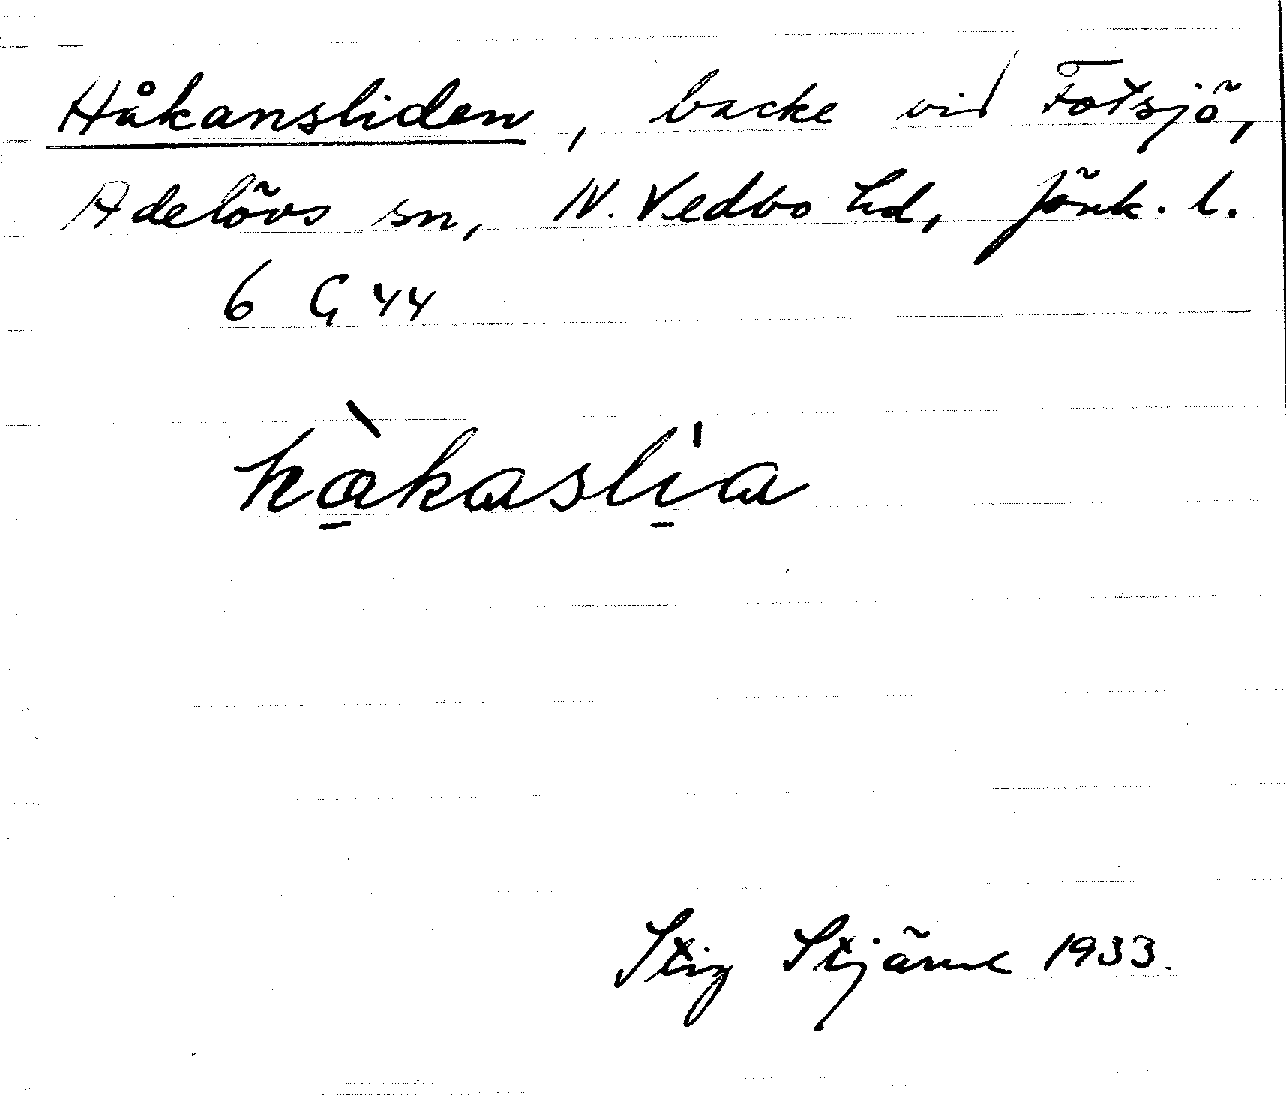 Håkansliden, backe vid Fotsjö,
Adelövs sn, N. Vedbo hd, Jönk. l.
6 G 44
hàkaslia
Stig Stjärne 1933.